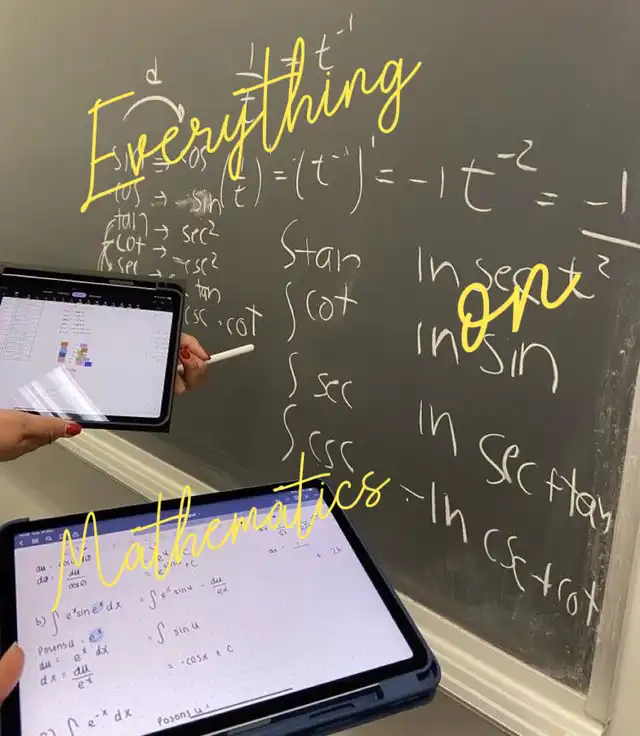 Everything
on
Mathematics
d
= t⁻¹
cos → -sin
tan → sec²
cot → -csc²
sec →
tan
csc · cot
(t) = (t⁻¹)' = -1 t⁻² = -1
t²
∫ tan ln sec
∫ cot ln sin
∫ sec ln sec + tan
∫ csc -ln csc + cot
b) ∫ eˣ sin eˣ dx = ∫ eˣ sin u · du/eˣ
Posons u = eˣ = ∫ sin u
du = eˣ dx
dx = du/eˣ = -cosx + C
∫ e⁻ˣ dx Posons u =